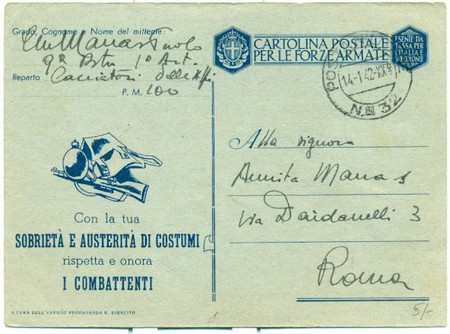 Grado, Cognome e Nome del mittente:
Manass Paolo
9a Btr 1° Art.
Reparto Cacciatori delle Alpi
P. M. 100
CARTOLINA POSTALE
PER LE FORZE ARMATE
ESENTE DA
TASSA PER
L'ITALIA E
14-1-42-XX
N. 32
Con la tua
SOBRIETÀ E AUSTERITÀ DI COSTUMI
rispetta e onora
I COMBATTENTI
A CURA DELL'UFFICIO PROPAGANDA R. ESERCITO
Alla signora
Annita Manass
Via Dardanelli 3
Roma
5/-